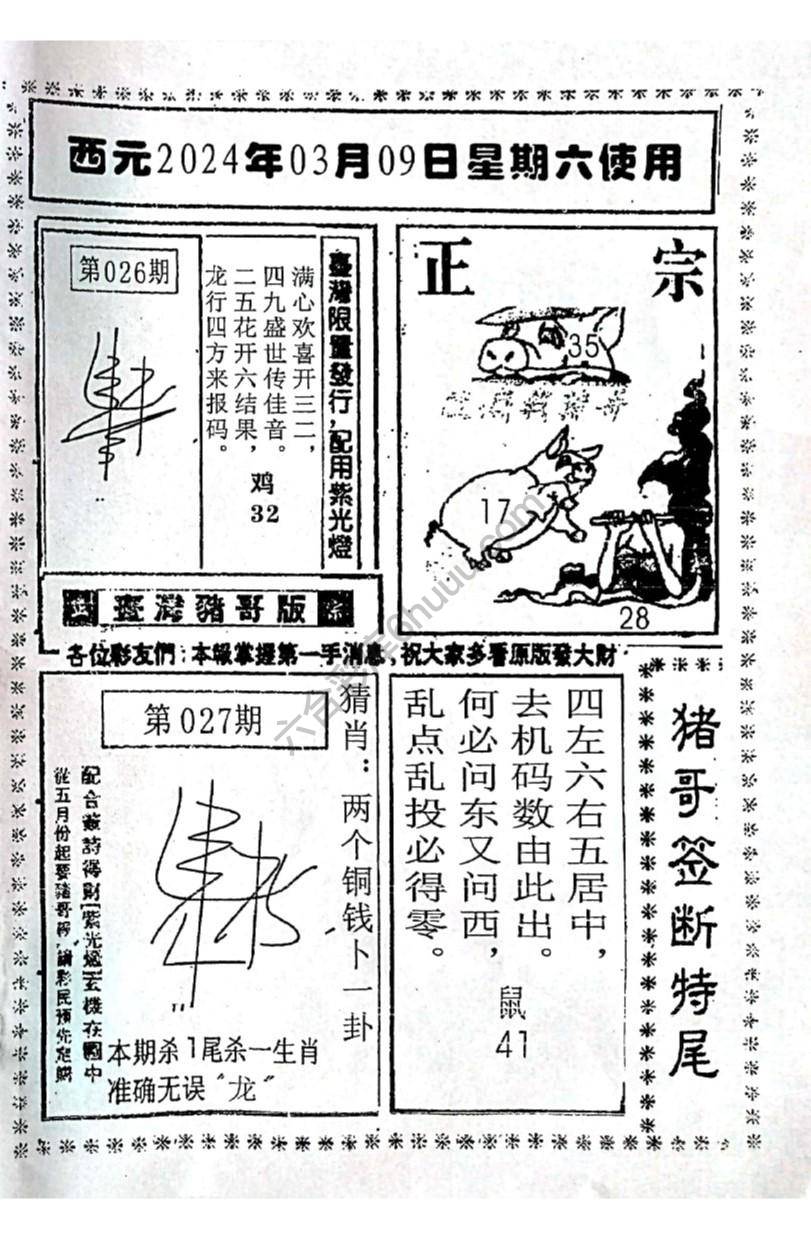 西元2024年03月09日星期六使用
第026期
臺灣限量發行,配用紫光燈
满心欢喜开三二,
四九盛世传佳音。
二五花开六结果,
龙行四方来报码。
鸡
32
正宗
35
17
28
臺灣豬哥版
各位彩友們:本報掌握第一手消息,祝大家多看原版發大財
第027期
猜肖:两个铜钱卜一卦
配合籤詩得財!紫光燈玄機在圖中
從五月份起要豬哥報,請彩民預先定購
本期杀1尾杀一生肖
准确无误“龙”
四左六右五居中,
去机码数由此出。
何必问东又问西,
乱点乱投必得零。
鼠
41
猪哥签断特尾